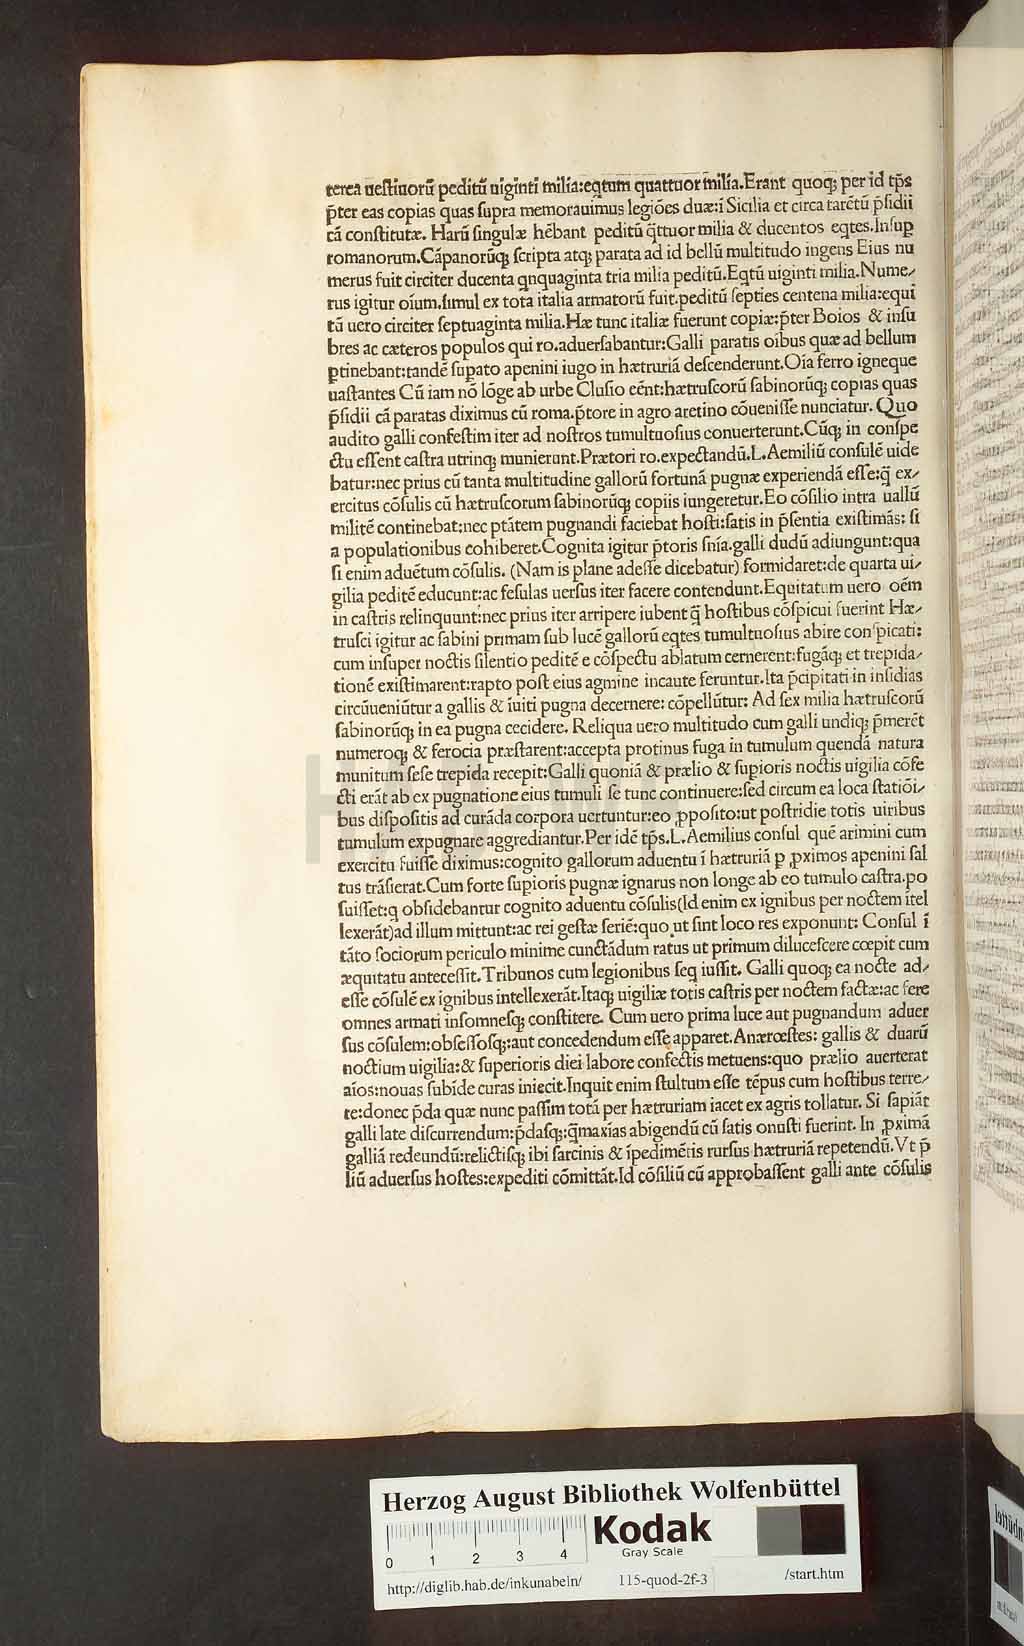 terea uestinorũ peditũ uiginti milia:eqtum quattuor milia.Erant quoq; per id tp̃s
p̃ter eas copias quas supra memorauimus legiões duæ:ĩ Sicilia et circa tarẽtũ p̃sidii
cã constitutæ. Harũ singulæ hẽbant peditũ q̃ttuor milia & ducentos eqtes.Insup
romanorum.Cãpanorũq; scripta atq; parata ad id bellũ multitudo ingens Eius nu
merus fuit circiter ducenta qnquaginta tria milia peditũ.Eqtũ uiginti milia.Nume-
rus igitur oĩum.simul ex tota italia armatorũ fuit.peditũ septies centena milia:equi
tũ uero circiter septuaginta milia.Hæ tunc italiæ fuerunt copiæ:p̃ter Boios & insu
bres ac cæteros populos qui ro.aduersabantur:Galli paratis oibus quæ ad bellum
ꝑtinebant:tandẽ supato apenini iugo in hætruriã descenderunt.Oĩa ferro igneque
uastantes Cũ iam nõ lõge ab urbe Clusio cẽnt:hætruscorũ sabinorũq; copias quas
p̃sidii cã paratas diximus cũ roma.p̃tore in agro aretino cõuenisse nunciatur. Quo
audito galli confestim iter ad nostros tumultuosius conuerterunt.Cũq; in conspe
ctu essent castra utrinq; munierunt.Prætori ro.expectandũ.L.Aemiliũ consulẽ uide
batur:nec prius cũ tanta multitudine gallorũ fortunã pugnæ experiendã esse:q̃ ex-
ercitus cõsulis cũ hætruscorum sabinorũq; copiis iungeretur.Eo cõsilio intra uallũ
militẽ continebat:nec ptãtem pugnandi faciebat hosti:satis in p̃sentia existimãs: si
a populationibus cohiberet.Cognita igitur p̃toris sñia.galli dudũ adiungunt:qua
si enim aduẽtum cõsulis. (Nam is plane adesse dicebatur) formidaret:de quarta ui-
gilia peditẽ educunt:ac fesulas uersus iter facere contendunt.Equitatum uero oẽm
in castris relinquunt:nec prius iter arripere iubent q̃ hostibus cõspicui fuerint Hæ-
trusci igitur ac sabini primam sub lucẽ gallorũ eqtes tumultuosius abire conspicati:
cum insuper noctis silentio peditẽ e cõspectu ablatum cernerent:fugãq; et trepida-
tionẽ existimarent:rapto post eius agmine incaute feruntur.Ita p̃cipitati in insidias
circũueniũtur a gallis & ĩuiti pugna decernere: cõpellũtur: Ad sex milia hætruscorũ
sabinorũq; in ea pugna cecidere. Reliqua uero multitudo cum galli undiq; p̃merẽt
numeroq; & ferocia præstarent:accepta protinus fuga in tumulum quendã natura
munitum sese trepida recepit:Galli quoniã & prælio & supioris noctis uigilia cõfe
cti erãt ab ex pugnatione eius tumuli se tunc continuere:sed circum ea loca statiõi-
bus dispositis ad curãda corpora uertuntur:eo ꝓposito:ut postridie totis uiribus
tumulum expugnare aggrediantur.Per idẽ tp̃s.L.Aemilius consul quẽ arimini cum
exercitu fuisse diximus:cognito gallorum aduentu ĩ hætruriã ꝑ ꝓximos apenini sal
tus trãsierat.Cum forte supioris pugnæ ignarus non longe ab eo tumulo castra.po
suisset:q obsidebantur cognito aduentu cõsulis(Id enim ex ignibus per noctem ĩtel
lexerãt)ad illum mittunt:ac rei gestæ seriẽ:quo ut sint loco res exponunt: Consul ĩ
tãto sociorum periculo minime cunctãdum ratus ut primum dilucescere cœpit cum
æquitatu antecessit.Tribunos cum legionibus seq iussit. Galli quoq; ea nocte ad-
esse cõsulẽ ex ignibus intellexerãt.Itaq; uigiliæ totis castris per noctem factæ:ac fere
omnes armati insomnesq; constitere. Cum uero prima luce aut pugnandum aduer
sus cõsulem:obsessosq;:aut concedendum esse apparet.Anærœstes: gallis & duarũ
noctium uigilia:& superioris diei labore confectis metuens:quo prælio auerterat
aĩos:nouas subĩde curas iniecit.Inquit enim stultum esse tẽpus cum hostibus terre-
te:donec p̃da quæ nunc passim totã per hætruriam iacet ex agris tollatur. Si sapiãt
galli late discurrendum:p̃dasq;:q̃maxĩas abigendũ cũ satis onusti fuerint. In ꝓximã
galliã redeundũ:relictisq; ibi sarcinis & ĩpedimẽtis rursus hætruriã repetendũ.Vt p̃
liũ aduersus hostes:expediti cõmittãt.Id cõsiliũ cũ approbassent galli ante cõsulis
Herzog August Bibliothek Wolfenbüttel
0 1 2 3 4
Kodak
Gray Scale
http://diglib.hab.de/inkunabeln/ 115-quod-2f-3 /start.htm